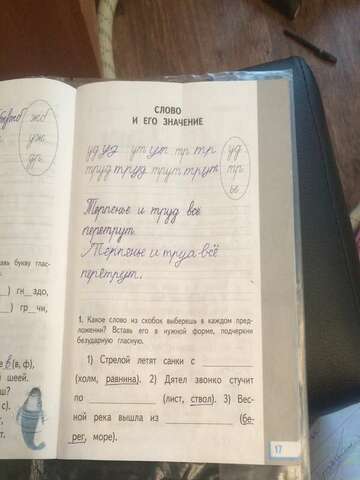 СЛОВО
И ЕГО ЗНАЧЕНИЕ
жб
уж
уд уд ут ут тр тр уд
труд труд трут трут тр
ье
Терпенье и труд всё
перетрут.
Терпенье и труд всё
перетрут.
1. Какое слово из скобок выберешь в каждом пред-
ложении? Вставь его в нужной форме, подчеркни
безударную гласную.
1) Стрелой летят санки с
(холм, равнина). 2) Дятел звонко стучит
по ____________ (лист, ствол). 3) Вес-
ной река вышла из ____________ (бе-
рег, море).
букву глас-
) гн__здо,
) гр__чи,
в (в, ф),
шеей.
17